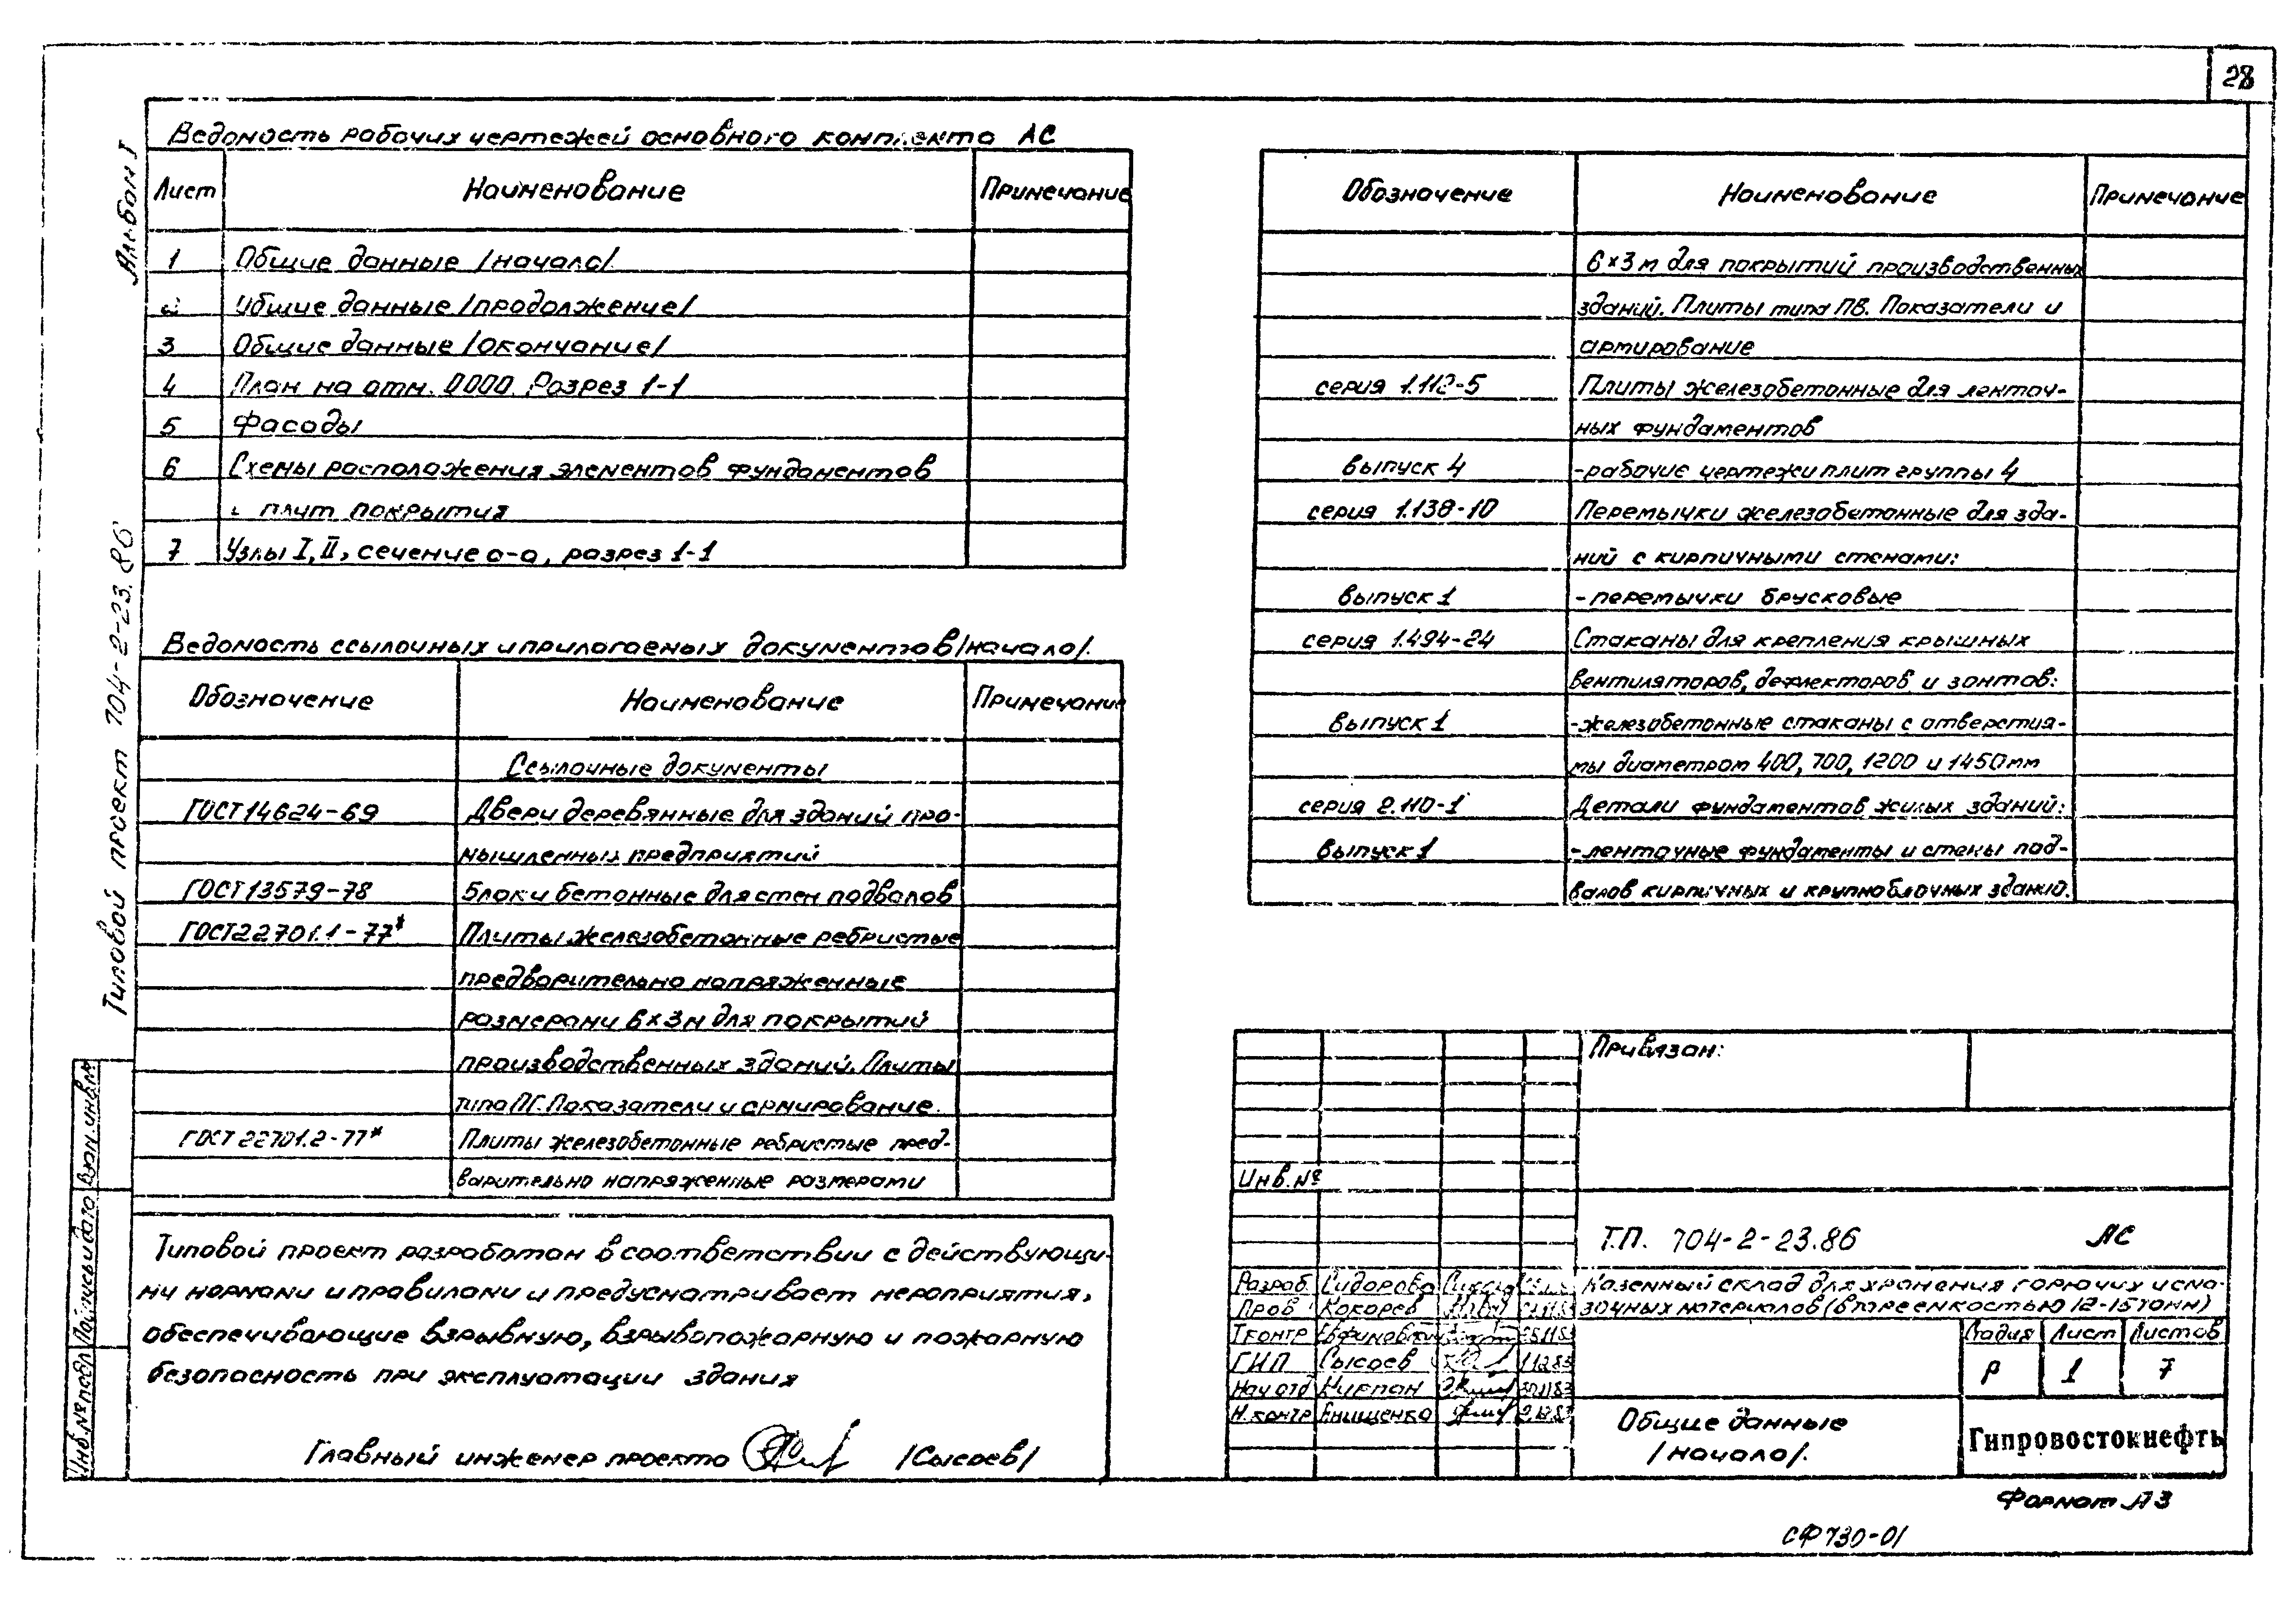 28
Альбом I
Типовой проект 704-2-23.86
Ведомость рабочих чертежей основного комплекта АС
Лист Наименование Примечание
1 Общие данные /начало/.
2 Общие данные /продолжение/
3 Общие данные /окончание/
4 План на отм. 0.000. Разрез 1-1
5 Фасады
6 Схемы расположения элементов фундаментов
и плит покрытия
7 Узлы I, II, сечение а-а, разрез 1-1
Ведомость ссылочных и прилагаемых документов /начало/.
Обозначение Наименование Примечание
Ссылочные документы
ГОСТ 14624-69 Двери деревянные для зданий про-
мышленных предприятий
ГОСТ 13579-78 Блоки бетонные для стен подвалов
ГОСТ 22701.1-77* Плиты железобетонные ребристые
предварительно напряженные
размерами 6х3м для покрытий
производственных зданий. Плиты
типа ПГ. Показатели и армирование.
ГОСТ 22701.2-77* Плиты железобетонные ребристые пред-
варительно напряженные размерами
Типовой проект разработан в соответствии с действующи-
ми нормами и правилами и предусматривает мероприятия,
обеспечивающие взрывную, взрывопожарную и пожарную
безопасность при эксплуатации здания
Главный инженер проекта /Сысоев/
Обозначение Наименование Примечание
6×3 м для покрытий производственных
зданий. Плиты типа ПВ. Показатели и
армирование
серия 1.112-5 Плиты железобетонные для ленточ-
ных фундаментов
выпуск 4 -рабочие чертежи плит группы 4
серия 1.138-10 Перемычки железобетонные для зда-
ний с кирпичными стенами:
выпуск 1 -перемычки брусковые
серия 1.494-24 Стаканы для крепления крышных
вентиляторов, дефлекторов и зонтов:
выпуск 1 -железобетонные стаканы с отверстия-
мы диаметром 400, 700, 1200 и 1450мм
серия 2.110-1 Детали фундаментов жилых зданий:
выпуск 1 -ленточные фундаменты и стены под-
валов кирпичных и крупноблочных зданий.
Привязан:
Инв.№
Т.П. 704-2-23.86 АС
Разраб. Сидорова
Пров. Кокорев
Т.контр
ГИП Сысоев 1.12.83
Нач отд Кирпан 30.11.83
Н.контр Енищенко
Казенный склад для хранения горючих и сма-
зочных материалов (в таре емкостью 12-15 тонн)
Стадия Лист Листов
Р 1 7
Общие данные
/начало/.
Гипровостокнефть
Формат А3
СФ 730-01
Взам.инв.№
Подпись и дата
Инв.№ подл